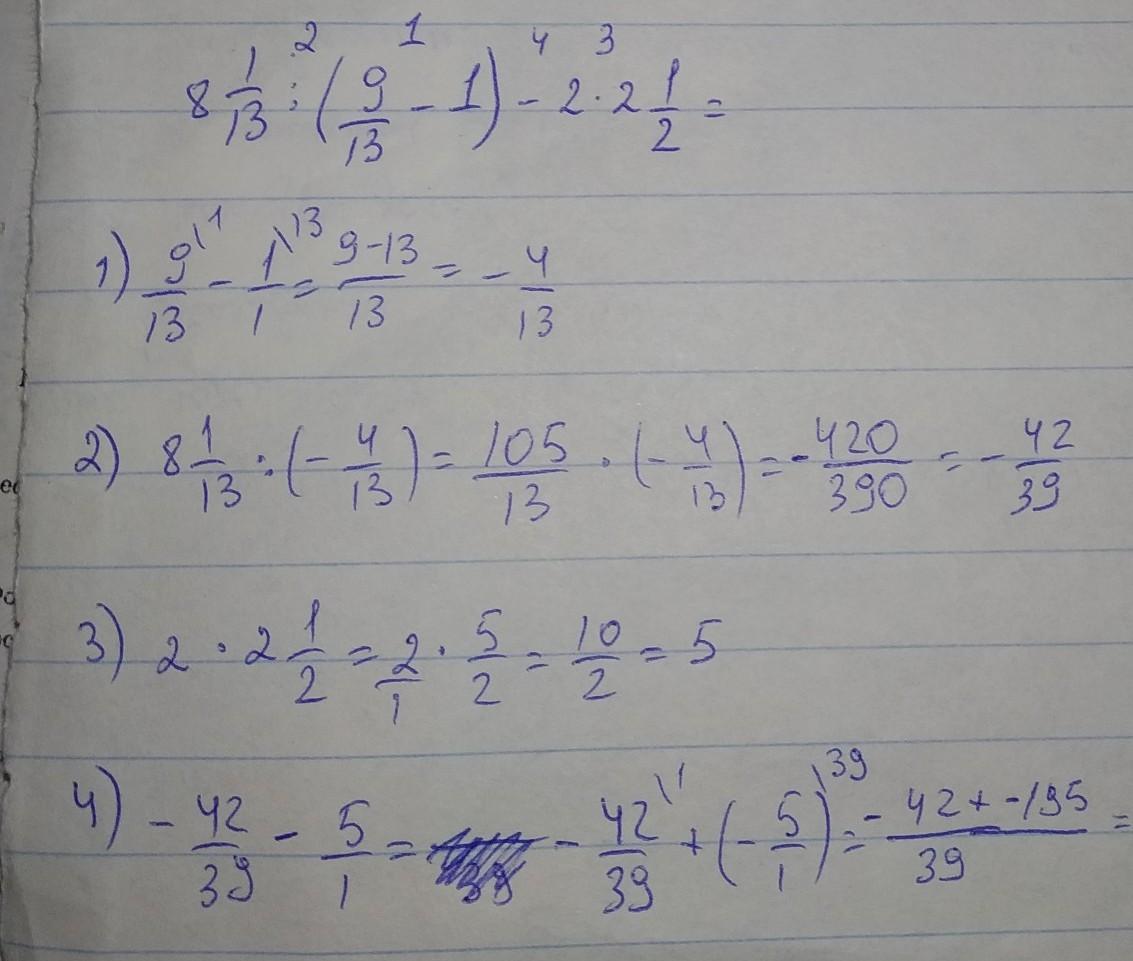 2 1 4 3
8 1/13 : (9/13 - 1) - 2 · 2 1/2 =
1) 9/13\1 - 1/1\13 = 9-13/13 = - 4/13
2) 8 1/13 : (- 4/13) = 105/13 · (- 4/13) = - 420/390 = - 42/39
3) 2 · 2 1/2 = 2/1 · 5/2 = 10/2 = 5
4) - 42/39 - 5/1 = - 42/39\1 + (- 5/1)\39 = - 42 + -195/39 =